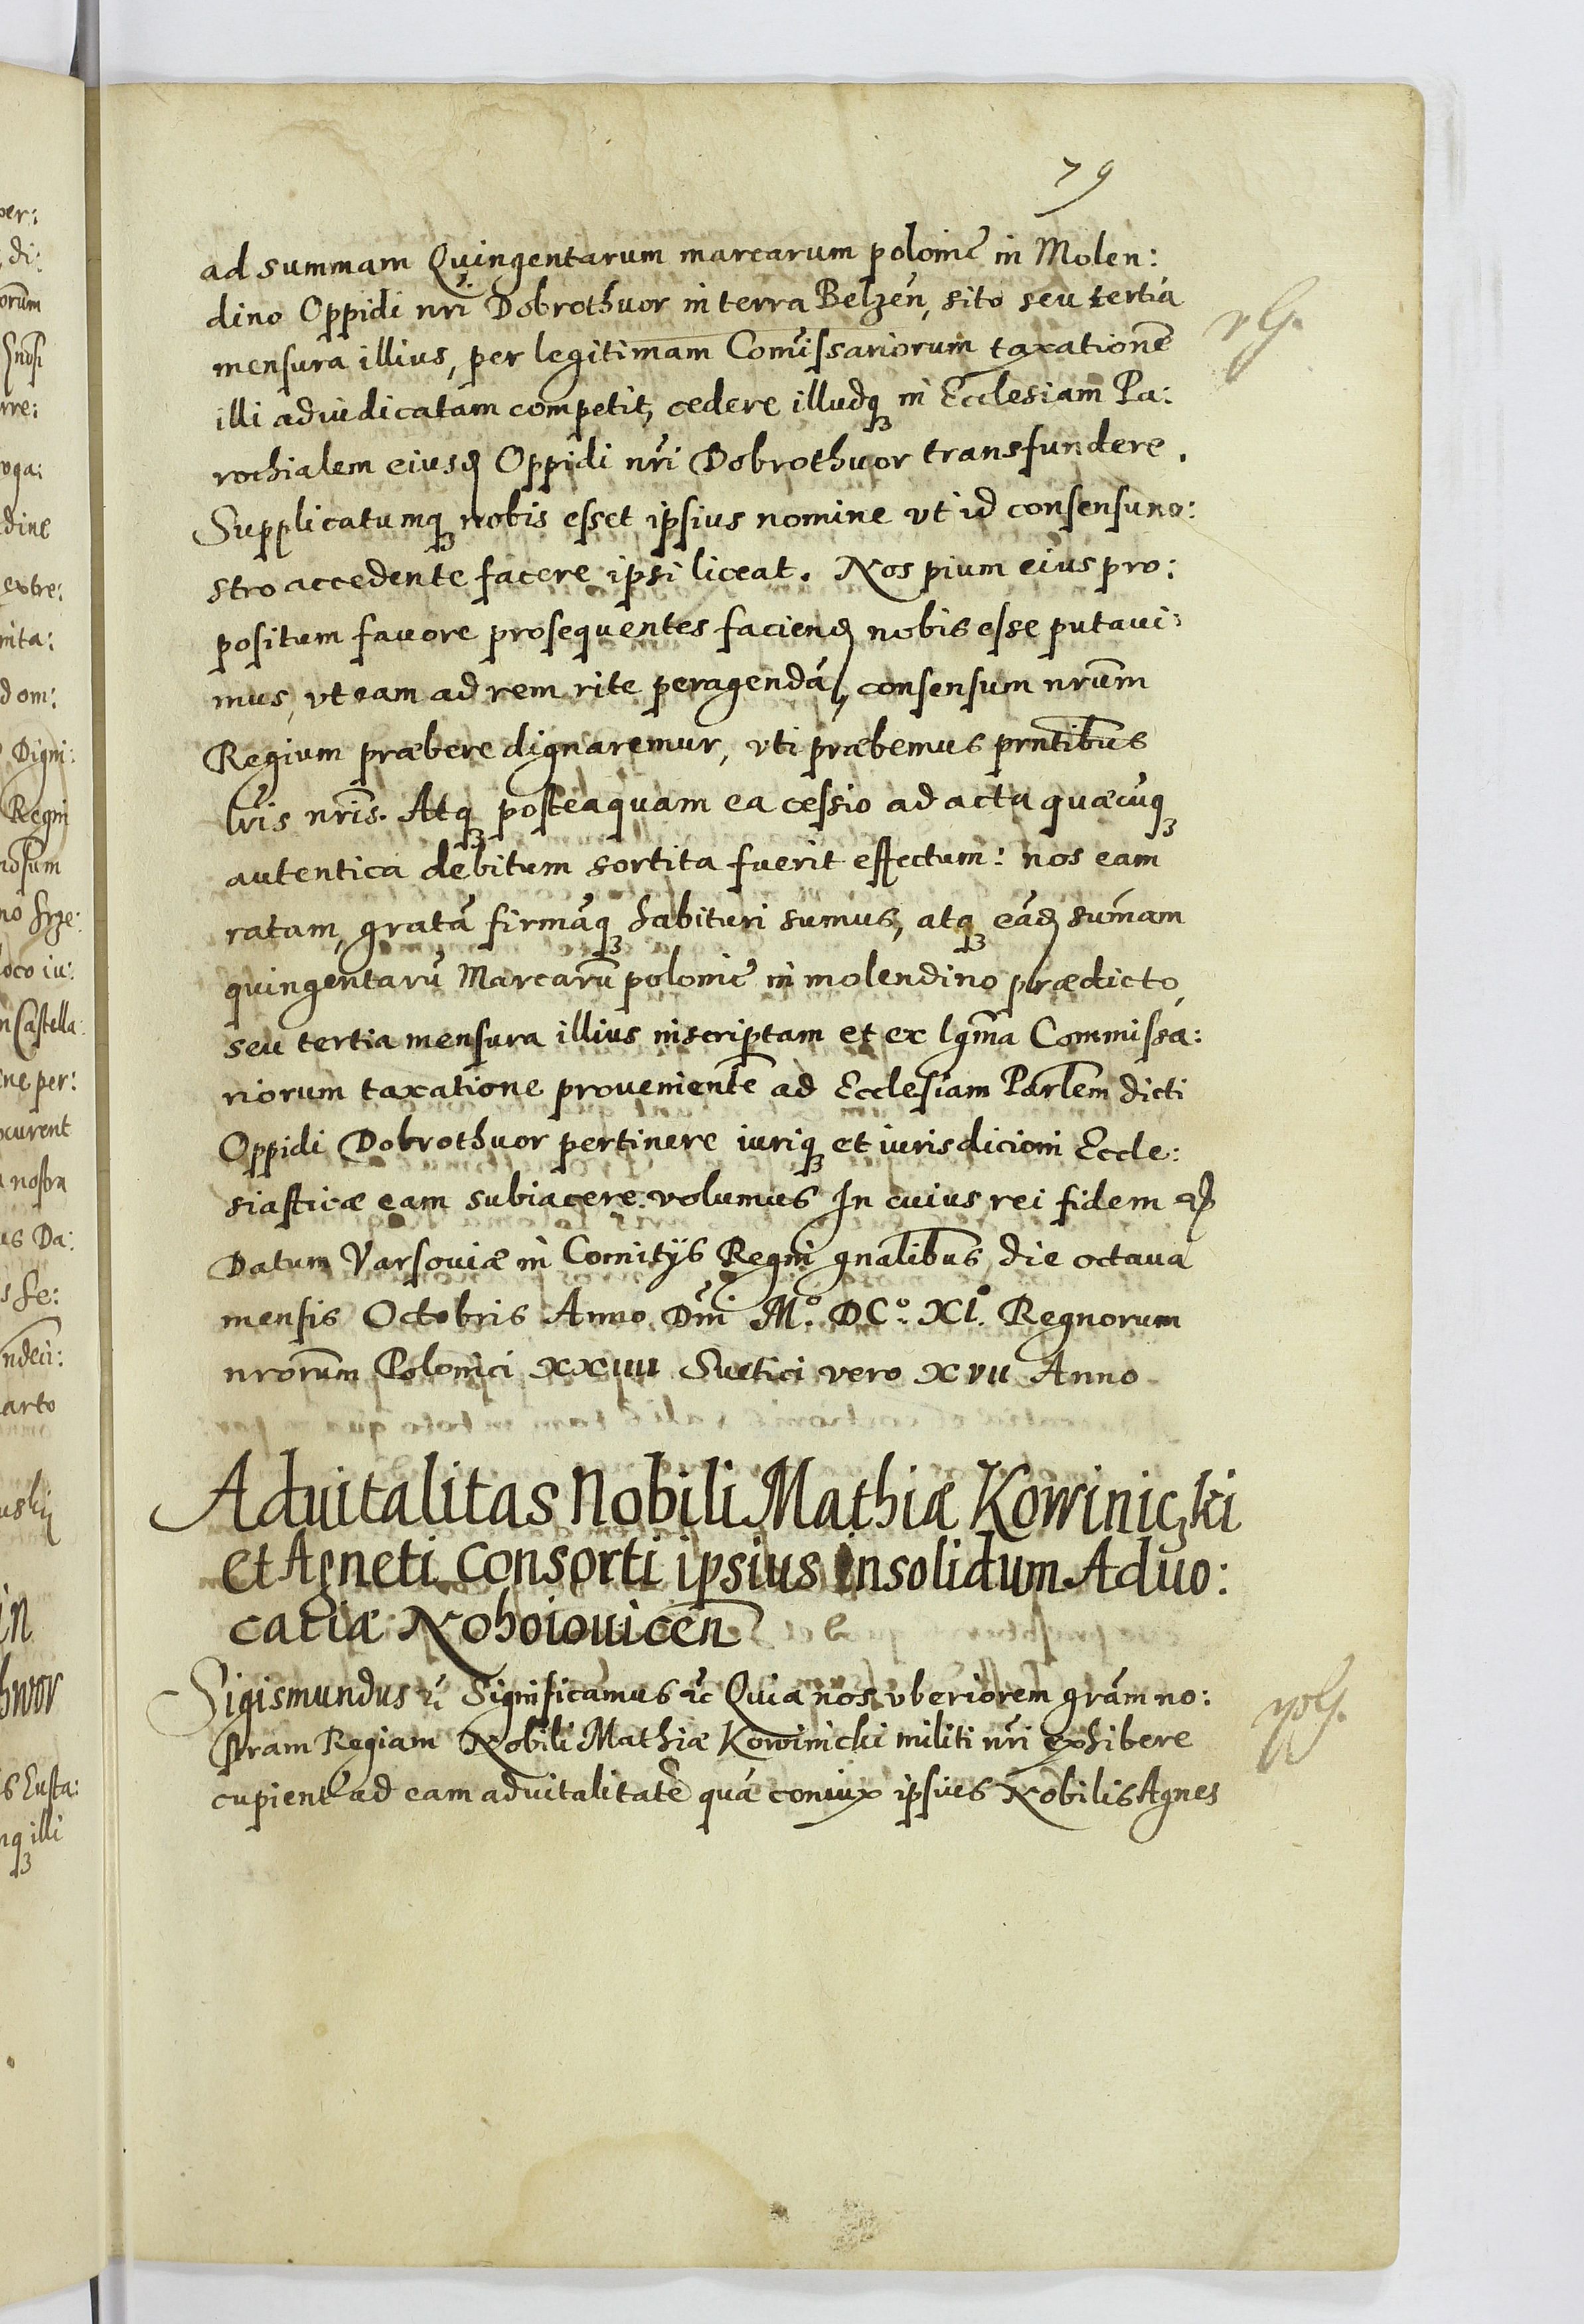 79
ad summam Quingentarum marcarum polonic̃ in Molen:
dino Oppidi nr̃i Dobrothvor in terra Belzeń, sito seu tertia
mensura illius, per legitimam Com̃issariorum taxationẽ
illi adiudicatam competit, cedere illudq₃ in Ecclesiam Pa:
rochialem eiusđ Oppidi nr̃i Dobrothvor transfundere.
Supplicatumq₃ nobis esset ipsius nomine vt id consensu no:
stro accedente facere ipsi liceat. Nos pium eius pro:
positum favore prosequentes faciend̃ nobis esse putavi:
mus, vt eam ad rem rite peragendã, consensum nrũm
Regium præbere dignaremur, vti præbemus prñtibus
lr̃is nr̃is. Atq₃ posteaquam ea cessio ad acta quæcũq₃
autentica debitum sortita fuerit effectum: nos eam
ratam, gratã firmãq₃ habituri sumus, atq₃ eãd̃ sum̃am
quingentarũ Marcarũ polonic̃ in molendino prædicto,
seu tertia mensura illius inscriptam et ex lgm̃a Commissa:
riorum taxatione provenientẽ ad Ecclesiam Parlẽm dicti
Oppidi Dobrothvor pertinere iuriq₃ et iurisdicioni Eccle:
siasticæ eam subiacere volumus In cuius rei fidem ꝛc̃
Datum Varsoviæ in Comitijs Regni gnãlibus die octava
mensis Octobris Anno Dñi Mº. DCº. XIº. Regnorum
nrõrum Polonici XXIIII Suetici vero XVII Anno
Advitalitas Nobili Mathiæ Kowiniczki
et Agneti consorti ipsius insolidum Advo:
catiæ Nohoiovicen̄
Sigismundus ꝛc̃ Significamus ꝛc̃ Quia nos vberiorem grãm no:
stram Regiam Nobili Mathiæ Kowinicki militi nr̃i exhibere
cupient̃ ad eam advitalitatẽ quã coniux ipsius Nobilis Agnes